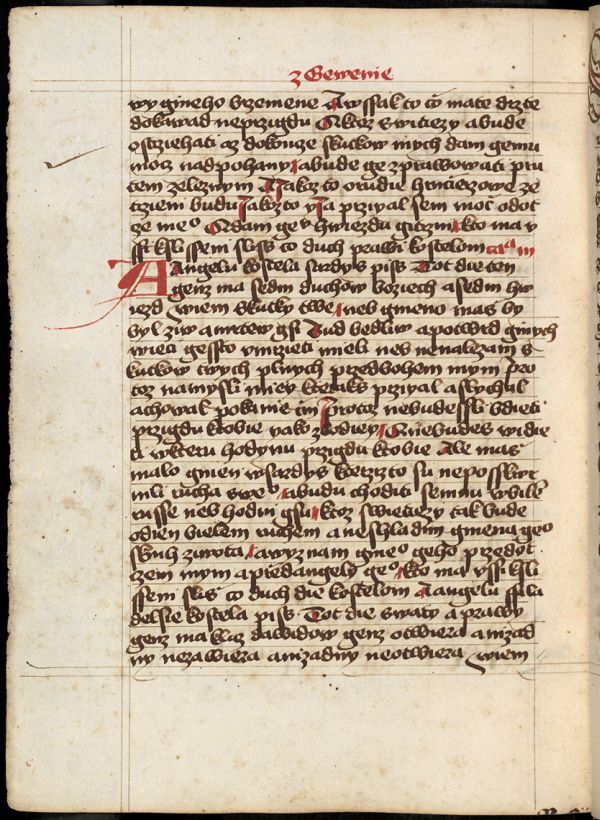 z Gewenie
wy gineho brzemene A wssak to co mate drzte
dokawad neprzigdu A ktoz switiezy a bude
ostrziehati az dokonze skutkow mych dam gemu
moc nad pohany a bude ge zprawowati pru
tem zeleznym A yakzto orudie hrnczierzowe ze
tzieni budu yakzto y ya przyal sem moc od ot
ze meo A dam geu hwiezdu gitrzni kto ma v
ssi ksli ssem sliss co duch prawi kostelom caa iii
Angelu kostela sardys piss Tot die ten
genz ma sedm duchow boziech a sedm hw
iezd wiem skutky twe neb gmeno mas by
byl ziw a mrtew gsi Bud bedliw a potwrd ginych
wieci gessto vmrzieti mieli neb nenalezam s
kutkow twych plnych przed bohem mym pro
toz na mysli miey kteraks przyal a slychal
a chowal pokanie czin Protoz nebudessli bdieti
przigdu k tobie yako zlodiey A nebudes widie
ti w kteru hodynu przigdu k tobie Ale mas
malo gmen w sardys kterzizto su neposskwr
nili rucha sweo a budu choditi se mnu w biler
russe neb hodni gsu ktoz swietiezy tak bude
odien bielem ruchem a neshladim gmena geo
z knih ziwota a wyznam gmeo geho przed ot
czem mym a przed angely geo kto ma vssi ksli
ssem slis co duch die kostelom A angelu ffila
delffie kostela piss Tot die swaty a prawy
genz ma klicz dawidow genz otwiera a nizad
ny nezawiera a nizadny neotwiera wiem